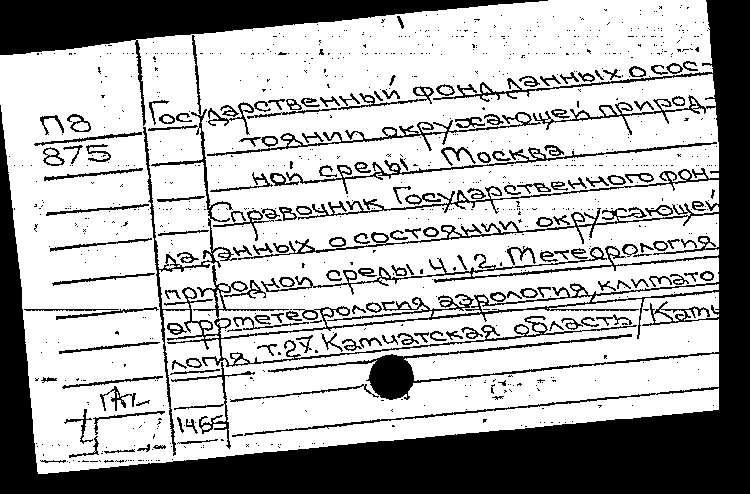 П8
875
Государственный фонд данных о сос-
тоянии окружающей природ-
ной среды. Москва.
Справочник Государственного фон-
да данных о состоянии окружающей
природной среды. Ч.1,2. Метеорология
агрометеорология, аэрология, климато
логия, т.27. Камчатская область/Камч
1465